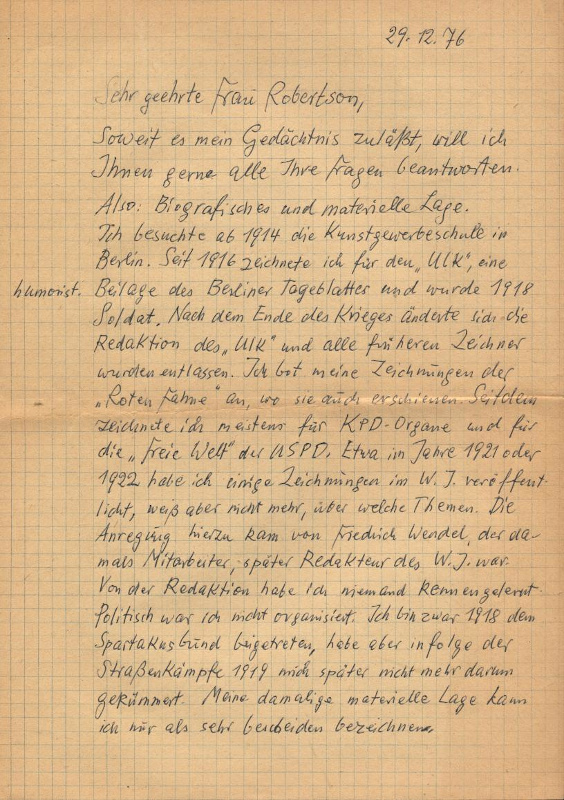 29.12.76
Sehr geehrte Frau Robertson,
Soweit es mein Gedächtnis zuläßt, will ich
Ihnen gerne alle Ihre Fragen beantworten.
Also: Biografisches und materielle Lage.
Ich besuchte ab 1914 die Kunstgewerbeschule in
Berlin. Seit 1916 zeichnete ich für den „Ulk", eine
humorist. Beilage des Berliner Tageblattes und wurde 1918
Soldat. Nach dem Ende des Krieges änderte sich die
Redaktion des „Ulk" und alle früheren Zeichner
wurden entlassen. Ich bot meine Zeichnungen der
„Roten Fahne" an, wo sie auch erschienen. Seitdem
zeichnete ich meistens für KPD-Organe und für
die „Freie Welt" der USPD. Etwa im Jahre 1921 oder
1922 habe ich einige Zeichnungen im W. J. veröffent-
licht, weiß aber nicht mehr, über welche Themen. Die
Anregung hierzu kam von Friedrich Wendel, der da-
mals Mitarbeiter, später Redakteur des W. J. war.
Von der Redaktion habe ich niemand kennengelernt.
Politisch war ich nicht organisiert. Ich bin zwar 1918 dem
Spartakusbund beigetreten, habe aber infolge der
Straßenkämpfe 1919 mich später nicht mehr darum
gekümmert. Meine damalige materielle Lage kann
ich nur als sehr bescheiden bezeichnen.